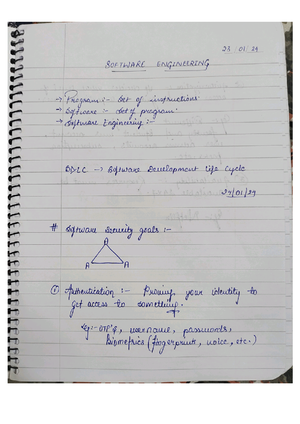 25/01/24
SOFTWARE ENGINEERING
→ Program :- Set of instructions
→ Software :- Set of program.
→ Software Engineering :-
SDLC → Software Development Life Cycle
29/01/24
# Software Security goals :-
A
A A
① Authentication :- Proving your identity to
get access to something.
Eg:- OTP's, username, passwords,
Biometrics (fingerprints, voice, etc.)